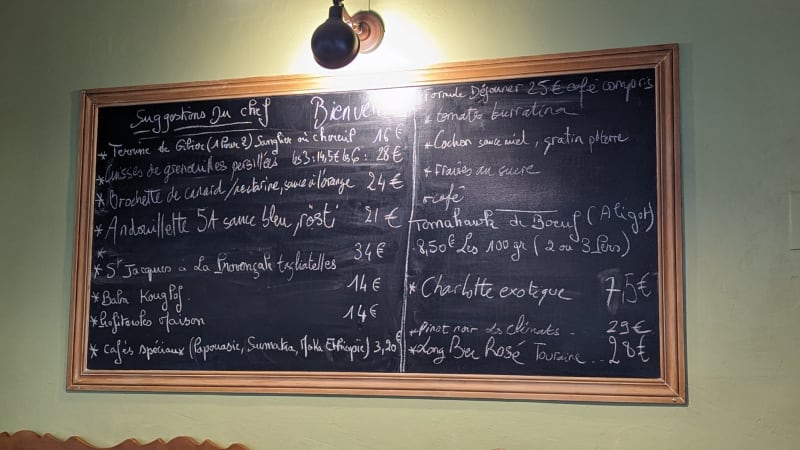 Suggestions Du chef
Bienven
* Terrine de Gibier (1 Pour 2) Sanglier ou chevreuil 16 €
* Cuisses de grenouilles persillées les 3 : 14,5€ les 6 : 28 €
* Brochette de canard / nectarine, sauce à l'orange 24 €
* Andouillette 5A sauce bleu, rösti 21 €
* St Jacques à la Provençale tagliatelles 34 €
* Baba Kouglof. 14 €
* Profiteroles Maison 14 €
* Cafés spéciaux (Papouasie, Sumatra, Moka Ethiopie) 3,20 €
Formule Déjeuner 25 € café compris
* tomate burratina
* Cochon sauce miel, gratin p.terre
* Fraises au sucre
* café
Tomahawk de Boeuf (Aligot)
8,50 € Les 100 gr (2 ou 3 Pers)
* Charlotte exotique 7,5 €
* Pinot noir Les climats .. 29 €
* Long Bec Rosé Touraine ... 28 €